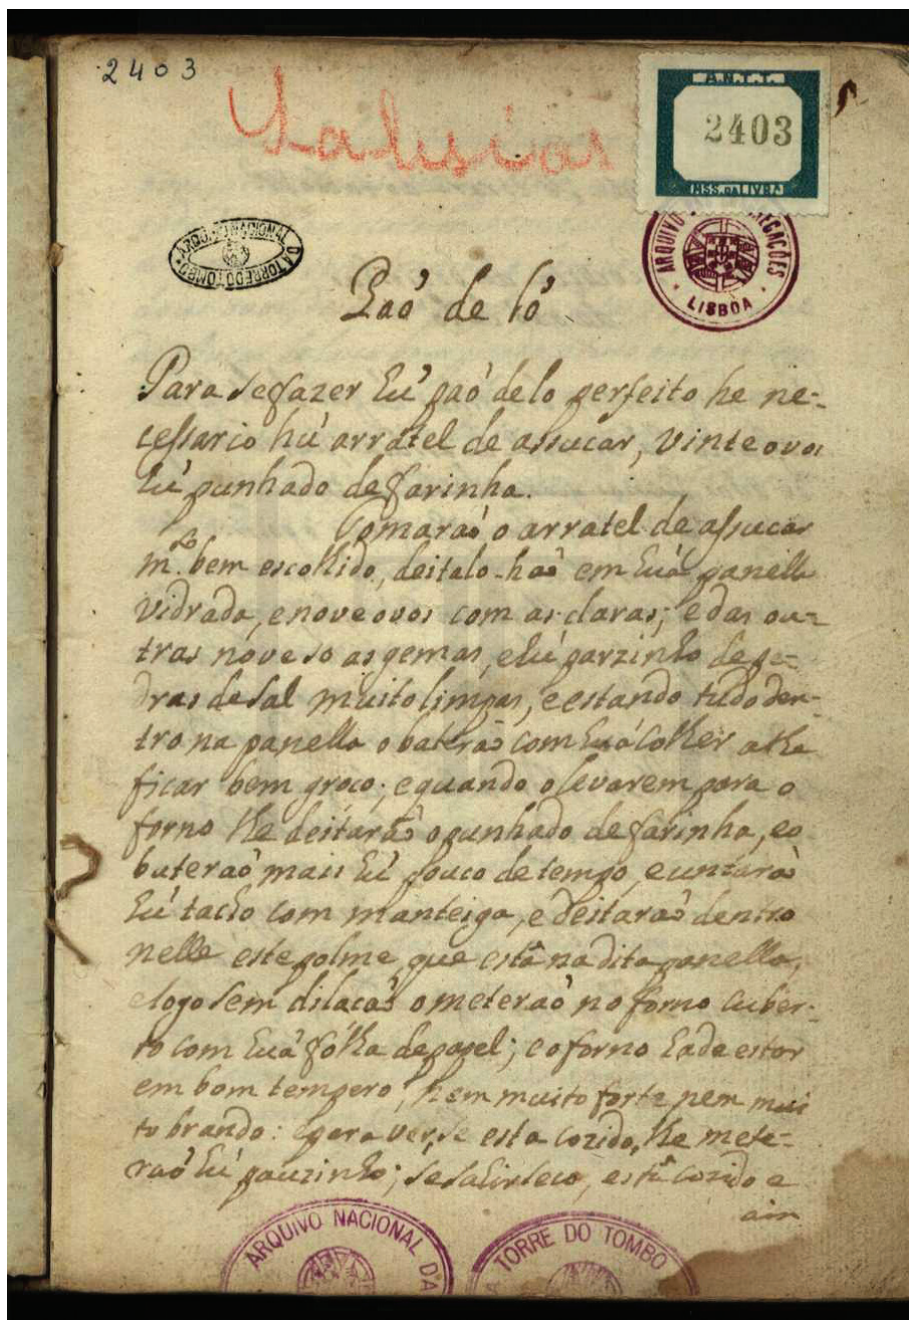 2403
A.N.T.T.
2403
MSS. DA LIVRA
ARQUIVO CONGREGAÇÕES
LISBOA
ARQUIVO NACIONAL DA TORRE DO TOMBO
Paó de ló
Para se fazer hú paó de lo perfeito he ne-
cessario hú arratel de assucar, vinte ovos
hú punhado de farinha.
Tomaraó o arratel de assucar
m.to bem escolhido, deitalo-haó em huá panella
vidrada, e nove ovos com as claras; e das ou-
tras nove so as gemas, e hú parzinho de pe-
dras de sal muito limpas, e estando tudo den-
tro na panella o bateraó com huá colher athe
ficar bem groço; e quando o levarem para o
forno lhe deitaraó o punhado de farinha, e o
bateraó mais hú pouco de tempo, e untaraó
hú tacho com manteiga, e deitaraó dentro
nelle este polme que está na dita panella,
e logo sem dilacaó o meteraó no forno cuber-
to com huá fólha de papel; e o forno hade estar
em bom tempero, nem muito forte nem mui
to brando: e para ver, se esta cozido, lhe mete-
raó hú pauzinho; se sahir seco, está cozido e
ain
ARQUIVO NACIONAL DA
TORRE DO TOMBO